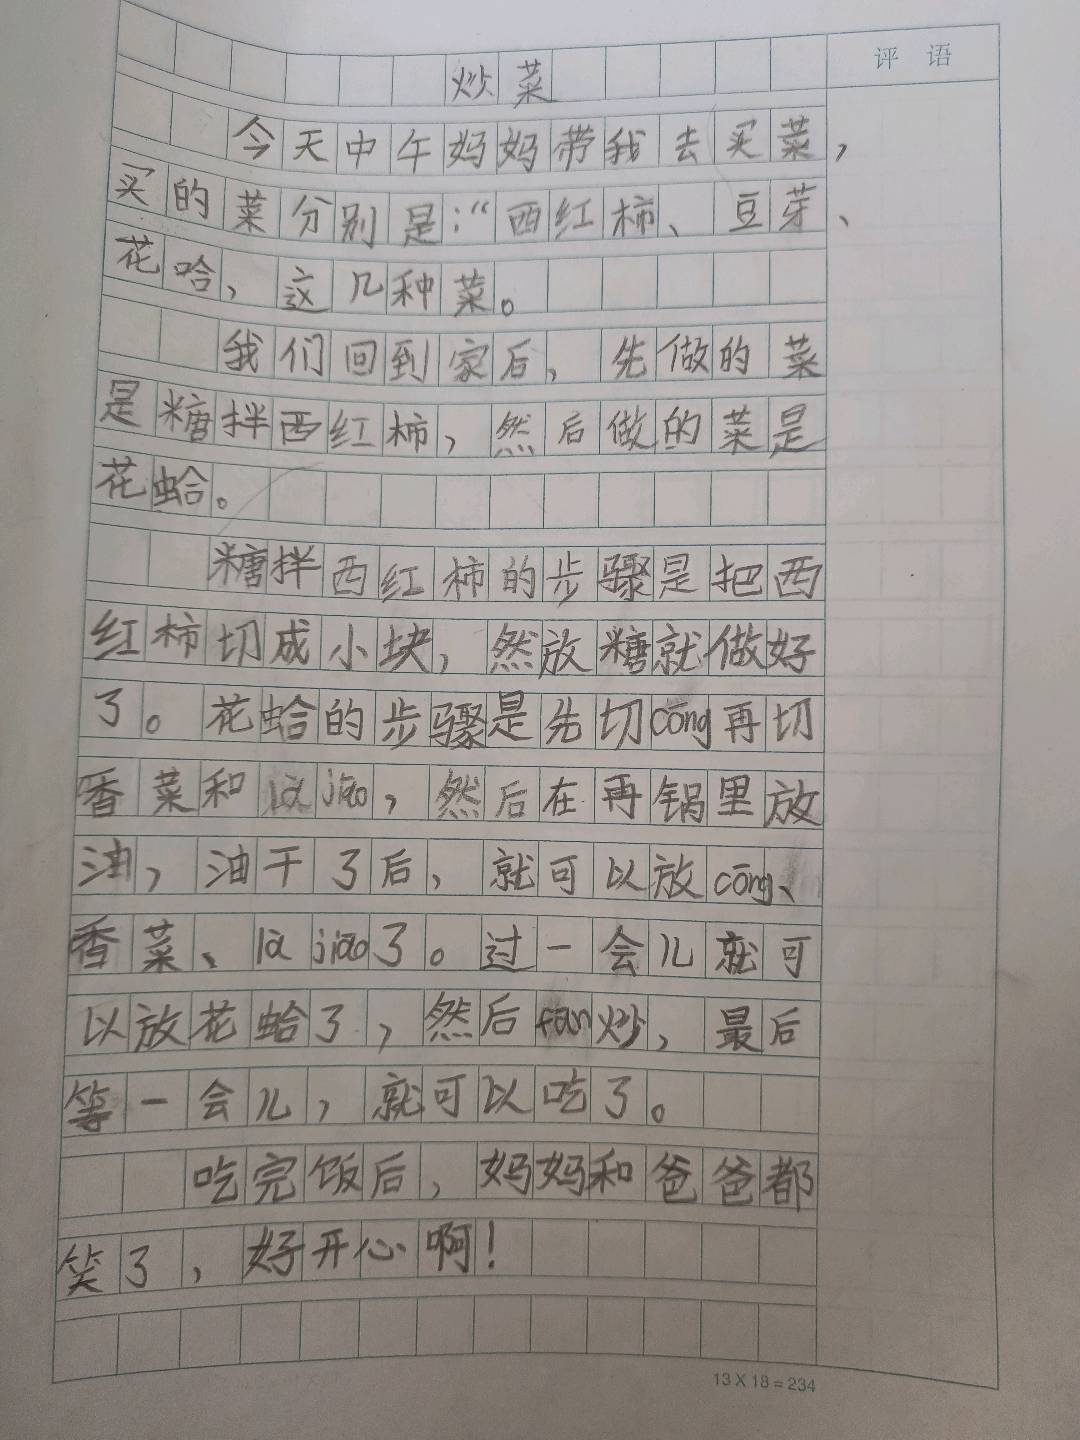 评 语
炒菜
今天中午妈妈带我去买菜，
买的菜分别是：“西红柿、豆芽、
花哈，这几种菜。
我们回到家后，先做的菜
是糖拌西红柿，然后做的菜是
花蛤。
糖拌西红柿的步骤是把西
红柿切成小块，然放糖就做好
了。花蛤的步骤是先切cōng再切
香菜和là jiāo，然后在再锅里放
油，油干了后，就可以放cōng、
香菜、là jiāo了。过一会儿就可
以放花蛤了，然后fān炒，最后
等一会儿，就可以吃了。
吃完饭后，妈妈和爸爸都
笑了，好开心啊！
13×18=234